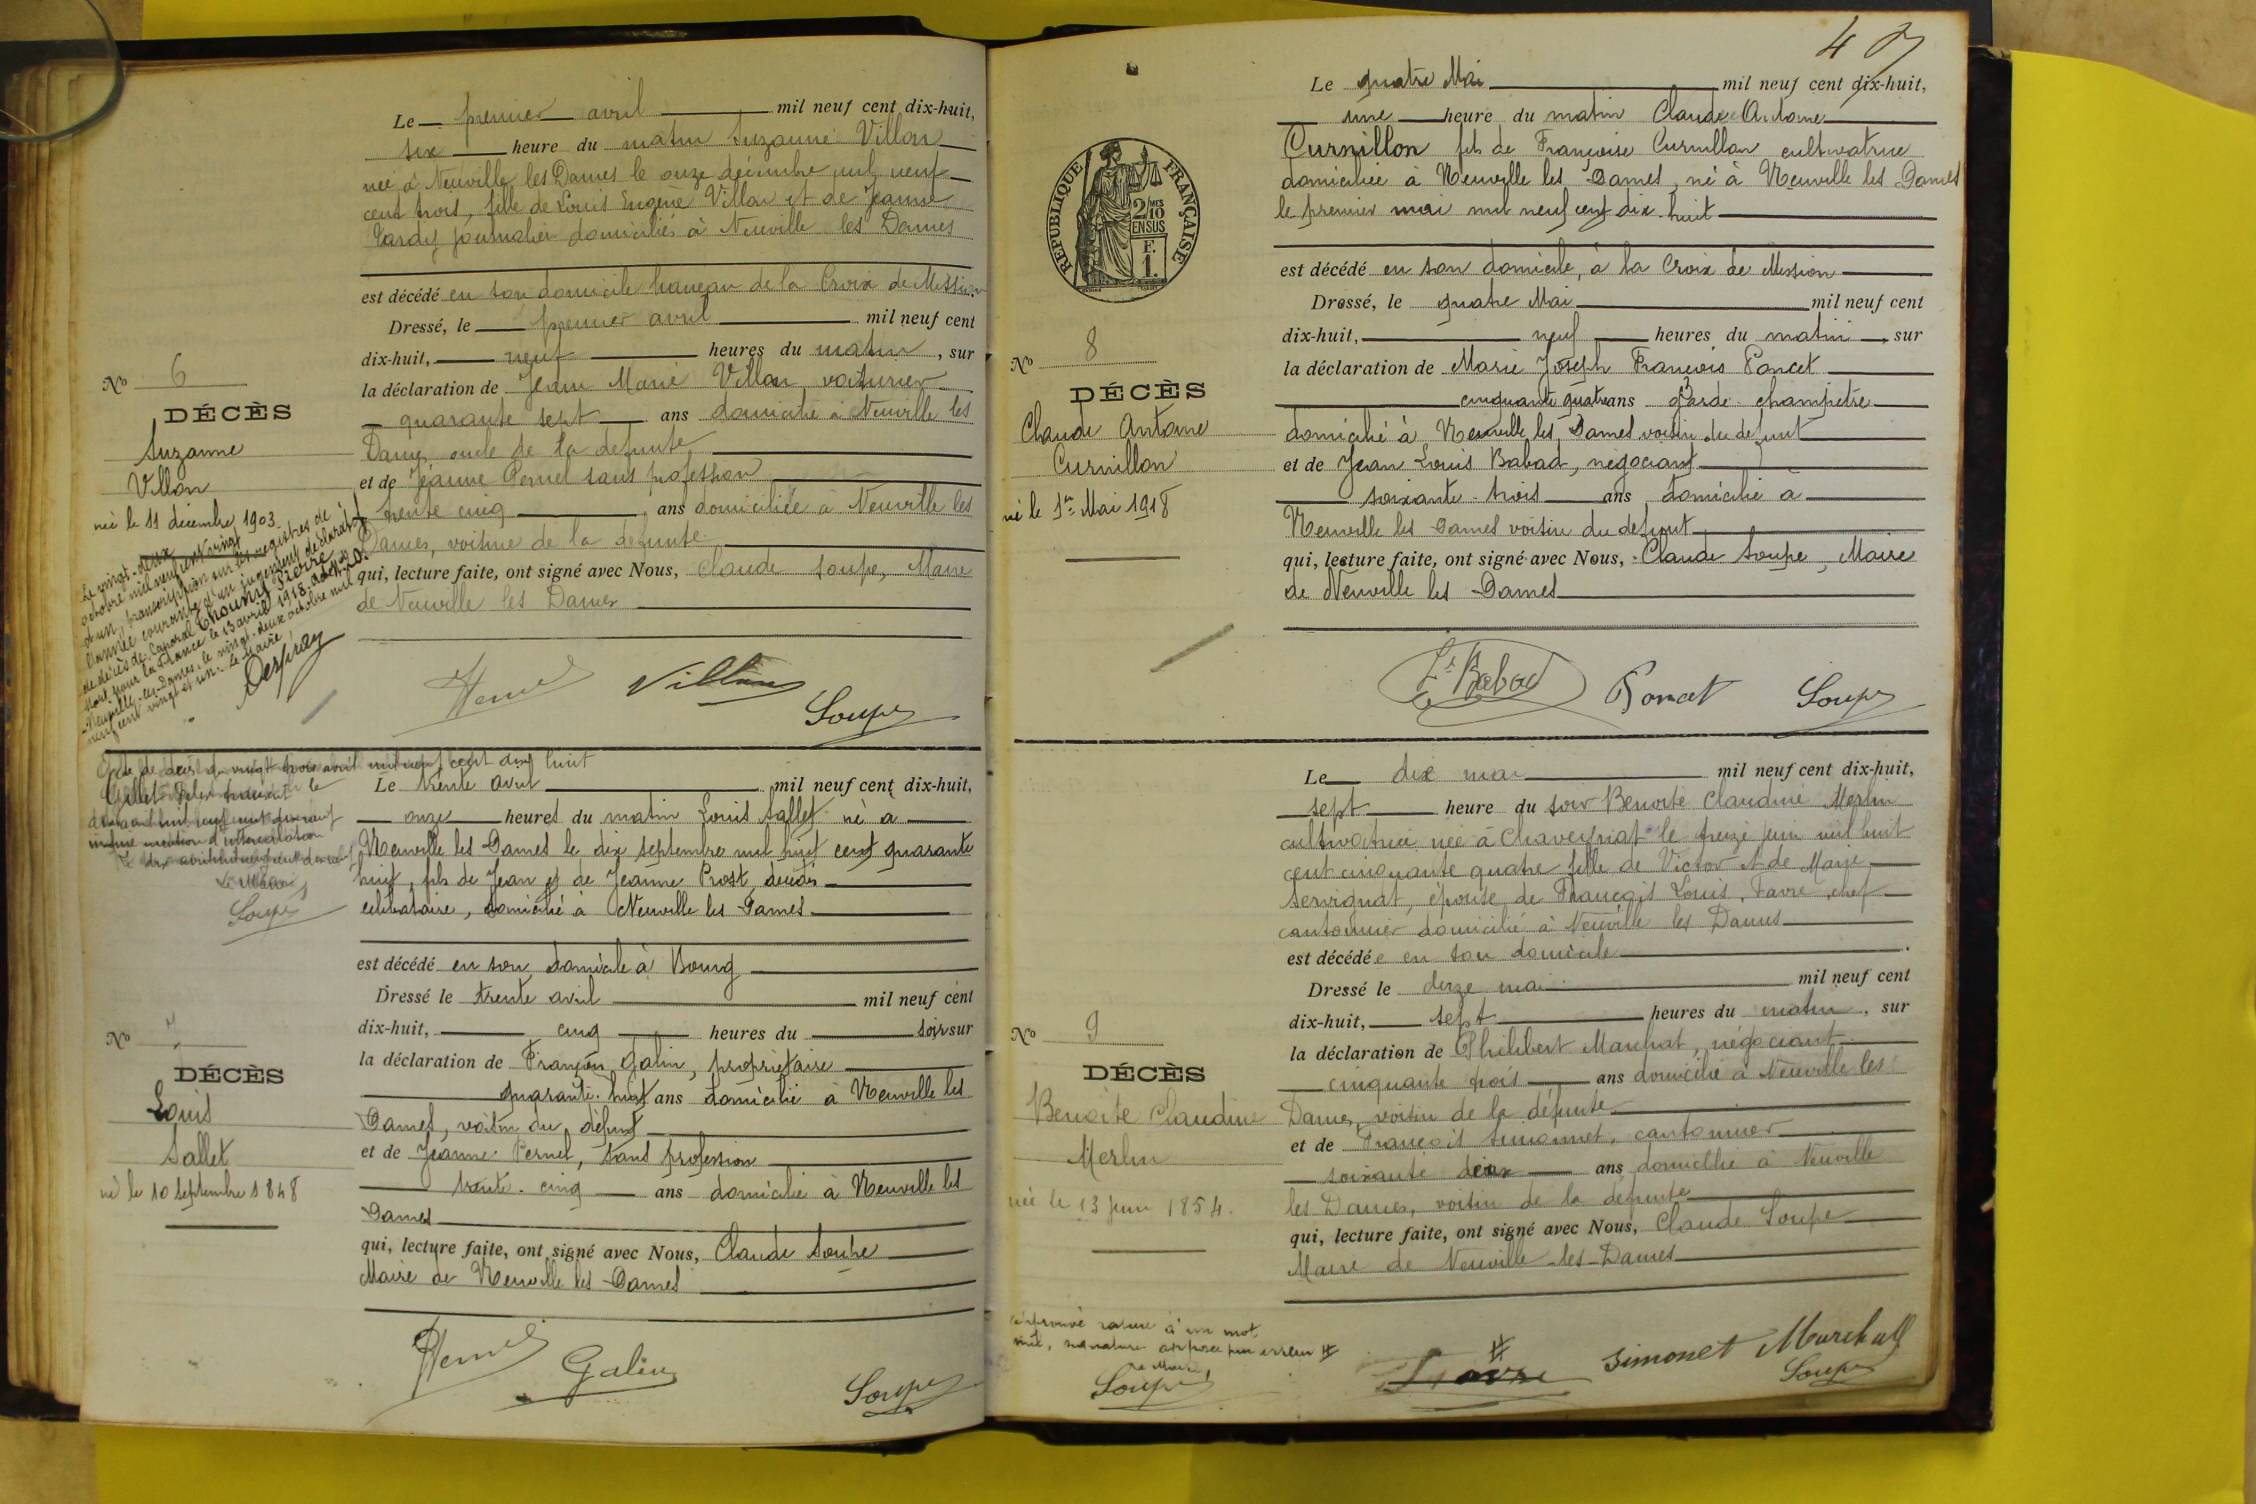 Le premier avril mil neuf cent dix-huit,
six heure du matin Suzanne Villon
née à Neuville les Dames le onze décembre mil neuf
cent trois, fille de Louis Eugène Villon et de Jeanne
Tardy journalier domiciliés à Neuville les Dames
est décédé en son domicile hameau de la Croix de Mission
Dressé, le premier avril mil neuf cent
dix-huit, neuf heures du matin, sur
la déclaration de Jean Marie Villon voiturier
quarante sept ans domicilié à Neuville les
Dames oncle de la défunte
et de Jeanne Pernel sans profession
trente cinq ans domiciliée à Neuville les
Dames, voisine de la défunte
qui, lecture faite, ont signé avec Nous, Claude Soupe, Maire
de Neuville les Dames
No 6
DÉCÈS
Suzanne
Villon
née le 11 décembre 1903
Le vingt-deux
octobre mil neuf cent vingt
et un, transcription sur les registres de
l'année courante d'un jugement déclaratif
de décès de Caporal Thouny Pierre
mort pour la France le 13 avril 1918. Acte No 20.
Neuville-les-Dames, le vingt-deux octobre mil
neuf cent vingt et un. Le Maire,
Villon
Soupe
Acte de décès du vingt trois avril mil neuf cent dix huit
Gillet
Le Maire
Soupe
Le trente avril mil neuf cent dix-huit,
onze heures du matin Louis Sallet né à
Neuville les Dames le dix septembre mil huit cent quarante
huit, fils de Jean et de Jeanne Prost, décédés
célibataire, domicilié à Neuville les Dames
est décédé en son domicile à Bourg
Dressé le trente avril mil neuf cent
dix-huit, cinq heures du soir sur
la déclaration de François Galin, propriétaire
quarante-huit ans domicilié à Neuville les
Dames, voisin du défunt
et de Jeanne Pernel, sans profession
trente-cinq ans domiciliée à Neuville les
Dames
qui, lecture faite, ont signé avec Nous, Claude Soupe
Maire de Neuville les Dames
No 7
DÉCÈS
Louis
Sallet
né le 10 septembre 1848
Galin
Soupe
4
RÉPUBLIQUE FRANÇAISE
2 MES
10
EN SUS
F.
1.
Le quatre Mai mil neuf cent dix-huit,
une heure du matin Claude Antoine
Curnillon fils de Françoise Curnillon cultivatrice
domiciliée à Neuville les Dames, né à Neuville les Dames
le premier mai mil neuf cent dix-huit
est décédé en son domicile, à la Croix de Mission
Dressé, le quatre Mai mil neuf cent
dix-huit, neuf heures du matin, sur
la déclaration de Marie Joseph François Poncet
cinquante quatre ans garde-champêtre
domicilié à Neuville les Dames voisin du défunt
et de Jean Louis Babad, négociant
soixante-trois ans domicilié à
Neuville les Dames voisin du défunt
qui, lecture faite, ont signé avec Nous, Claude Soupe, Maire
de Neuville les Dames
No 8
DÉCÈS
Claude Antoine
Curnillon
né le 1er Mai 1918
Babad Poncet Soupe
Le dix mai mil neuf cent dix-huit,
sept heure du soir Benoite Claudine Merlin
cultivatrice née à Chaveyriat le treize juin mil huit
cent cinquante quatre fille de Victor et de Marie
Servignat, épouse de François Louis Favre, chef
cantonnier domicilié à Neuville les Dames
est décédée en son domicile
Dressé le onze mai mil neuf cent
dix-huit, sept heures du matin, sur
la déclaration de Philibert Marchat, négociant
cinquante trois ans domicilié à Neuville les
Dames, voisin de la défunte
et de François Simonnet, cantonnier
soixante deux ans domicilié à Neuville
les Dames, voisin de la défunte
qui, lecture faite, ont signé avec Nous, Claude Soupe
Maire de Neuville-les-Dames
No 9
DÉCÈS
Benoite Claudine
Merlin
née le 13 juin 1854.
approuvé rature d'un mot
nul, signature apposée par erreur #
Le Maire,
Soupe
#
Favre Simonet
Soupe